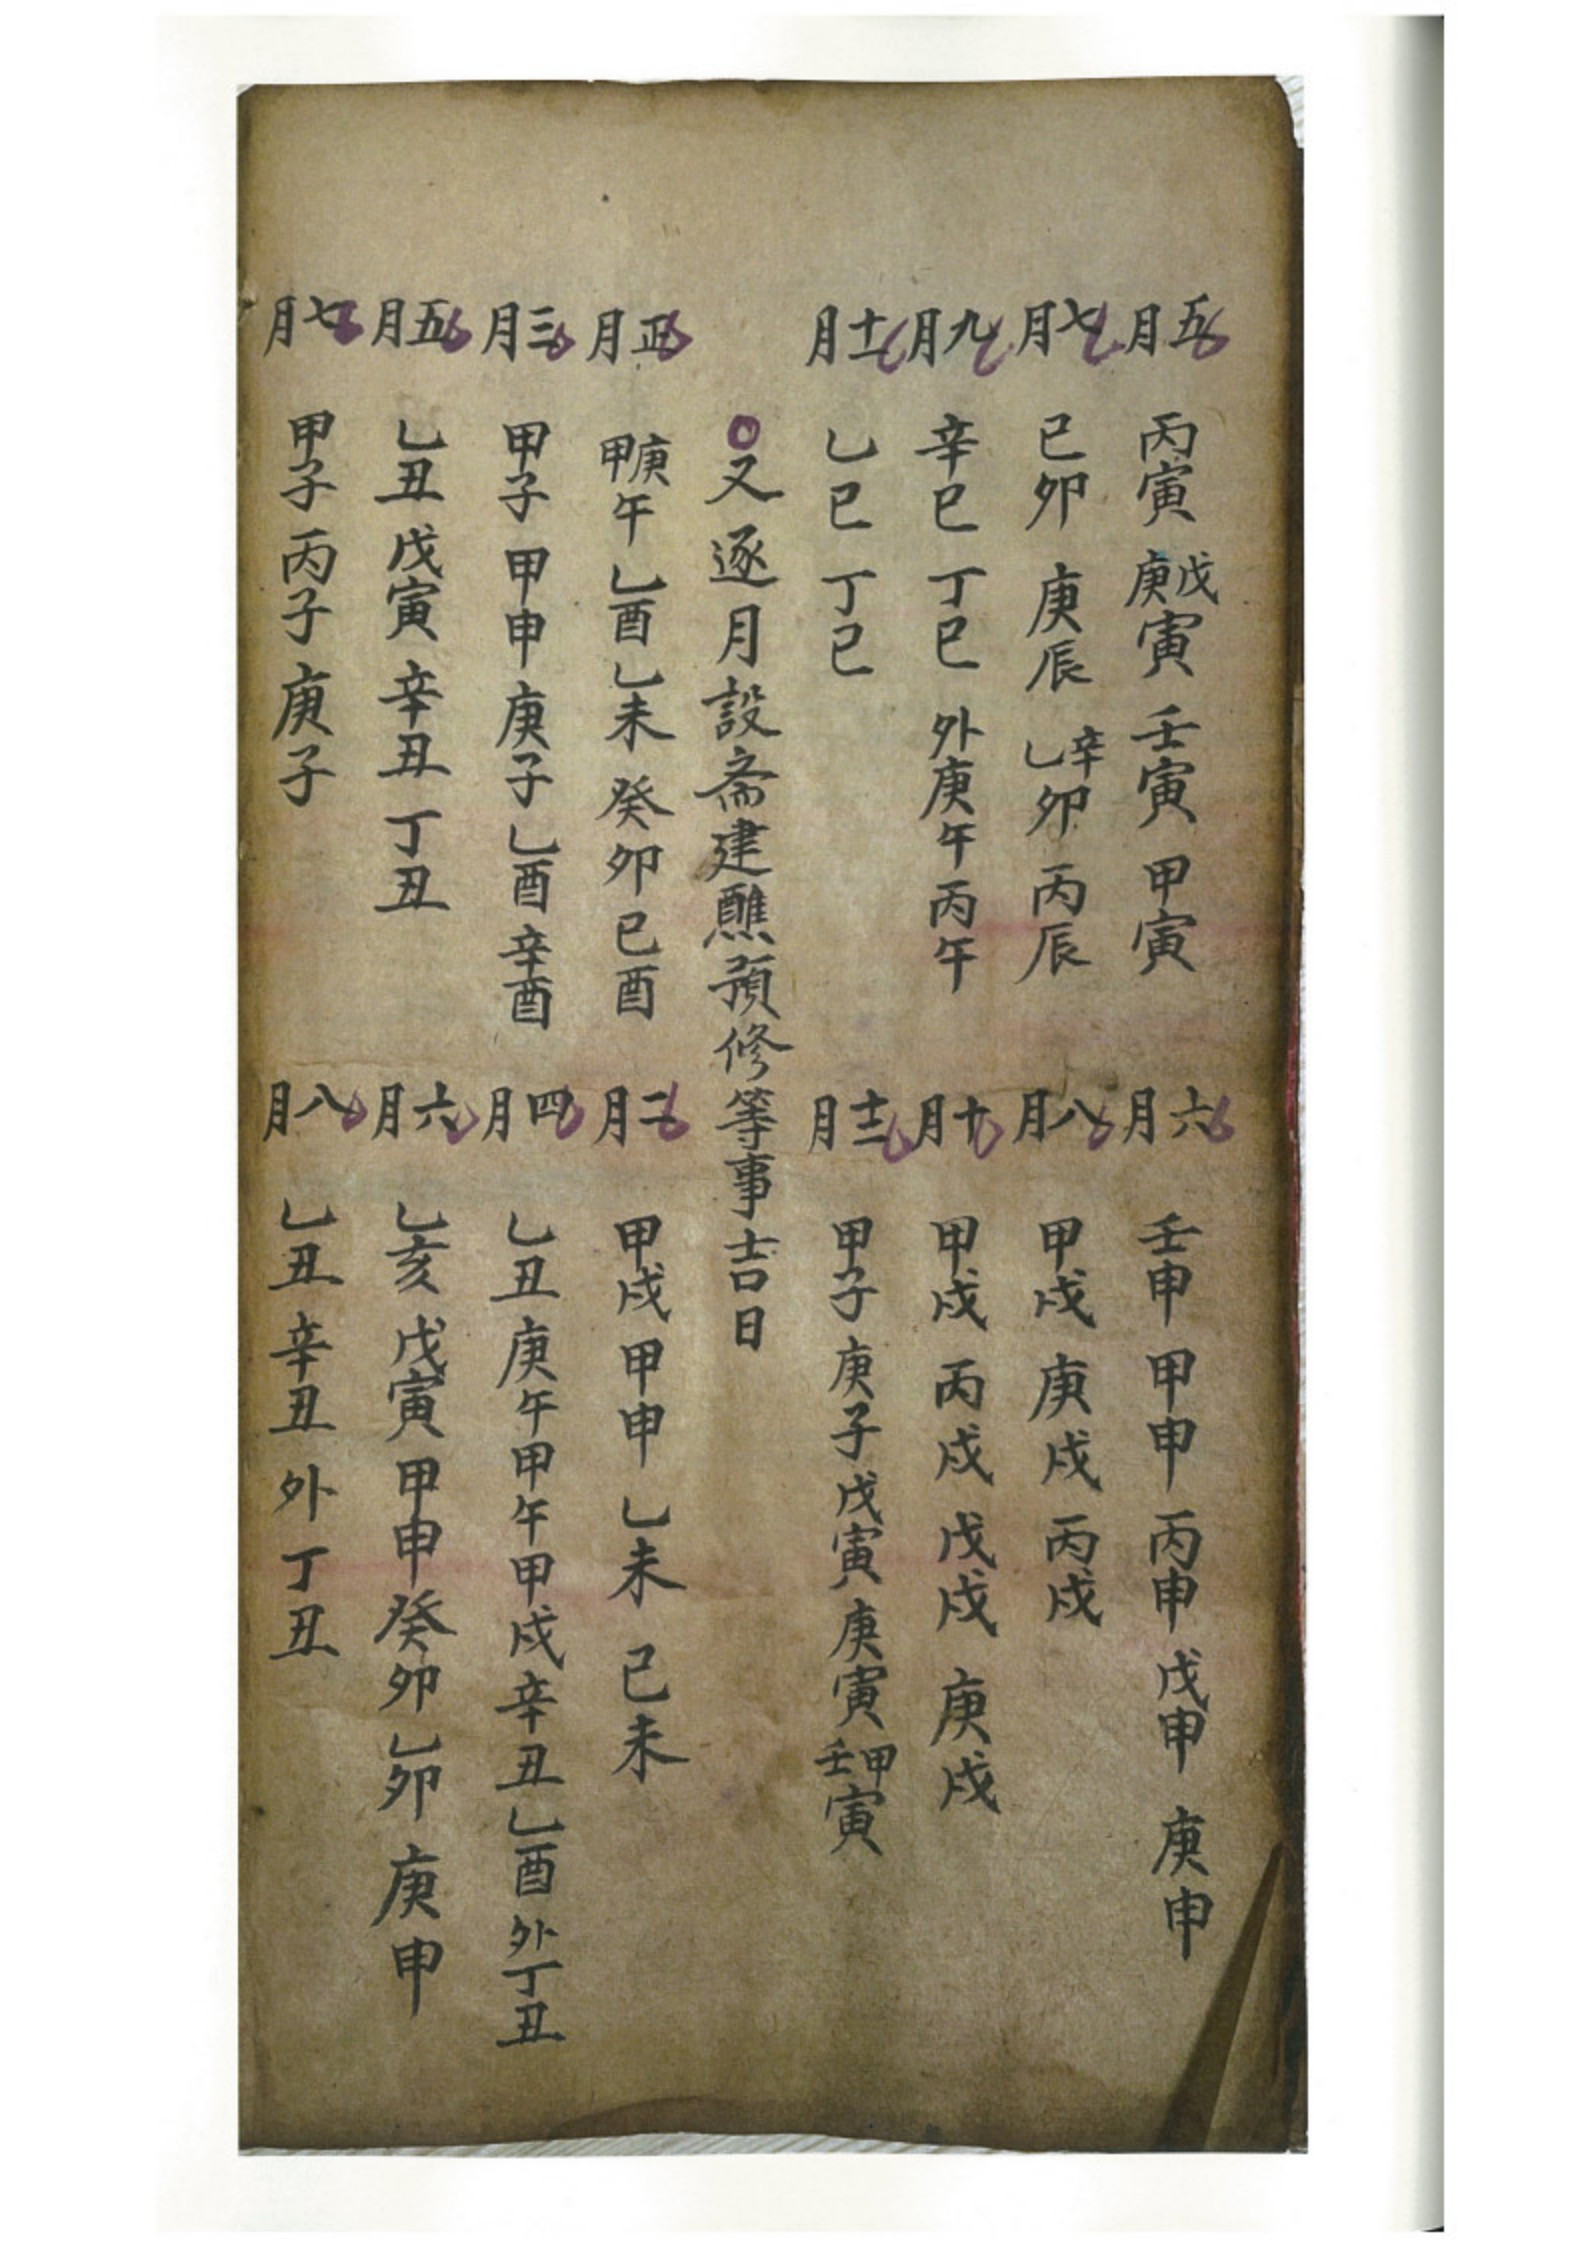 五月 丙寅 戊庚寅 壬寅 甲寅
六月 壬申 甲申 丙申 戊申 庚申
七月 己卯 庚辰 辛乙卯 丙辰
八月 甲戌 庚戌 丙戌
九月 辛巳 丁巳 外庚午 丙午
十月 甲戌 丙戌 戊戌 庚戌
十一月 乙巳 丁巳
十二月 甲子 庚子 戊寅 庚寅 甲壬寅
○又逐月設斋建醮預修等事吉日
正月 庚甲午 乙酉 乙未 癸卯 己酉
二月 甲戌 甲申 乙未 己未
三月 甲子 甲申 庚子 乙酉 辛酉
四月 乙丑 庚午 甲午 甲戌 辛丑 乙酉 外丁丑
五月 乙丑 戊寅 辛丑 丁丑
六月 乙亥 戊寅 甲申 癸卯 乙卯 庚申
七月 甲子 丙子 庚子
八月 乙丑 辛丑 外丁丑